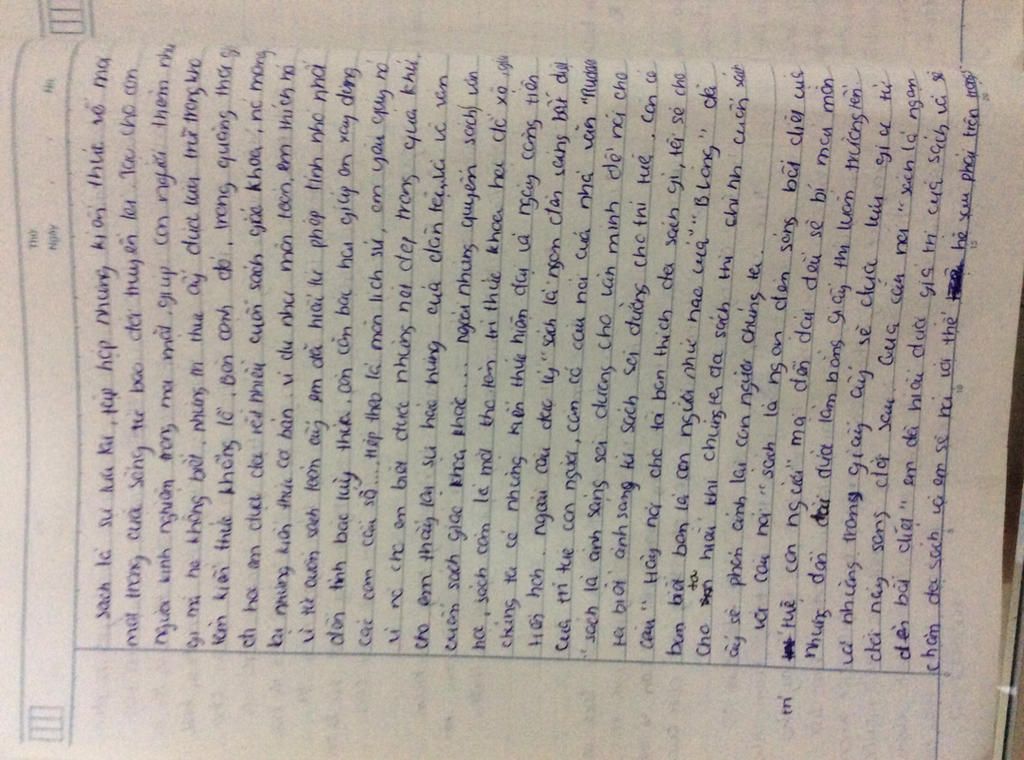 Thứ
Ngày
No
Sách là sự lưu lưu, tập hợp những kiến thức số mọi
mặt trong cuộc sống từ bao đời truyền lại. Sách cho con
người kinh nghiệm trong mọi mặt, giúp con người thêm
gì mà họ không biết, những tri thức ấy được lưu trữ trong kho
tàn kiến thức khổng lồ. Bên cạnh đó, trong quãng thời gi
đi học em được đọc rất nhiều cuốn sách giáo khoa, nó mang
lại những kiến thức cơ bản, ví dụ như môn toán, em thích nó
vì từ cuốn sách toán ấy em đã hiểu từ phép tính nhỏ nhất
đến tính bậc luỹ thừa, căn bậc hai giúp em xây dựng
các con số.... tiếp theo là môn lịch sử, em yêu quý nó
vì nó cho em biết được những nét đẹp trong quá khứ,
cho em thấy lại sự hào hùng của dân tộc, và vô vàn
cuốn sách giáo khoa khác.... ngoài những quyển sách văn
hoá, sách còn là một kho tàn tri thức khoa học để
chúng ta có những kiến thức hiện đại và ngày càng tiến
hơn. ngoài câu đúc lý "sách là ngọn đèn sáng bất diệt
của trí tuệ con người, còn có câu nói của nhà văn
"sách là ánh sáng soi đường cho văn minh để nói cho
ta biết ánh sáng từ sách soi đường cho trí tuệ. Còn có
câu " Hãy nói cho tôi bạn thích đọc sách gì, tôi sẽ cho
bạn biết bạn là con người như thế nào của "Blóng" đã
cho ta hiểu khi chúng ta đọc sách thì chính cuốn sách
ấy sẽ phản ánh lại con người chúng ta.
với câu nói "sách là ngọn đèn sáng bất diệt của
trí tuệ con người" mọi dân đọc đều sẽ bí
nhưng dẫn được làm bằng giấy thì luôn trường tồn.
và những trang giấy ấy sẽ được lưu giữ từ
đời này sang đời sau. Qua câu nói "sách là ngọn
đèn bất diệt" em đã hiểu được giá trị của sách và sẽ
chăm đọc sách và em sẽ nói với thế hệ sau phải trân trọng